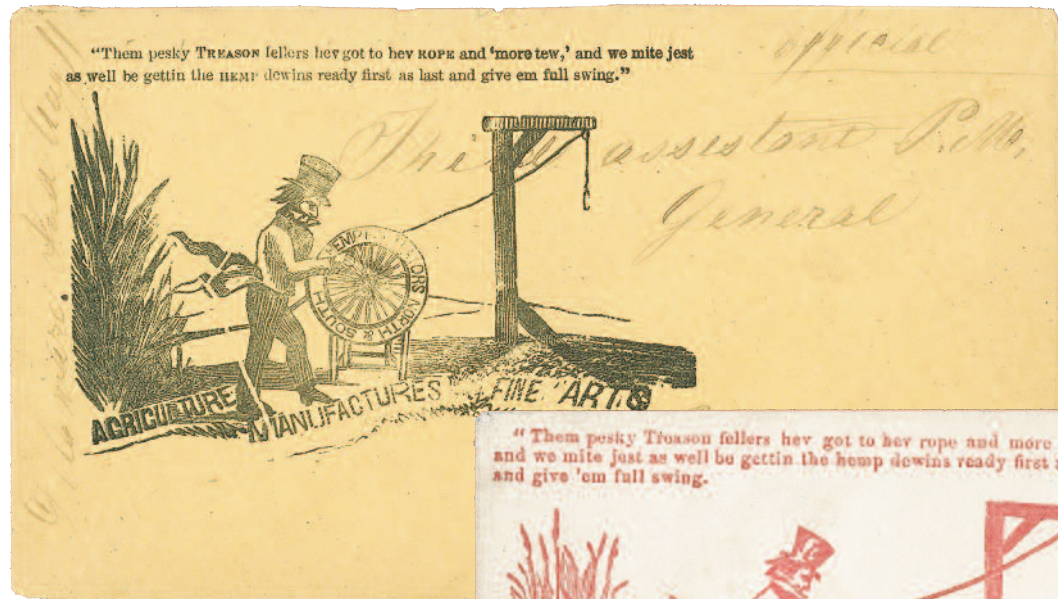 "Them pesky TREASON fellers hev got to hev ROPE and 'more tew,' and we mite jest
as well be gettin the HEMP dewins ready first as last and give em full swing."
official
The assistant P.M.
General
HEMP TORS NORTH & SOUTH
AGRICULTURE
MANUFACTURES
FINE ARTS
"Them pesky Treason fellers hev got to hev rope and more
and we mite jest as well be gettin the hemp dewins ready first
and give 'em full swing.